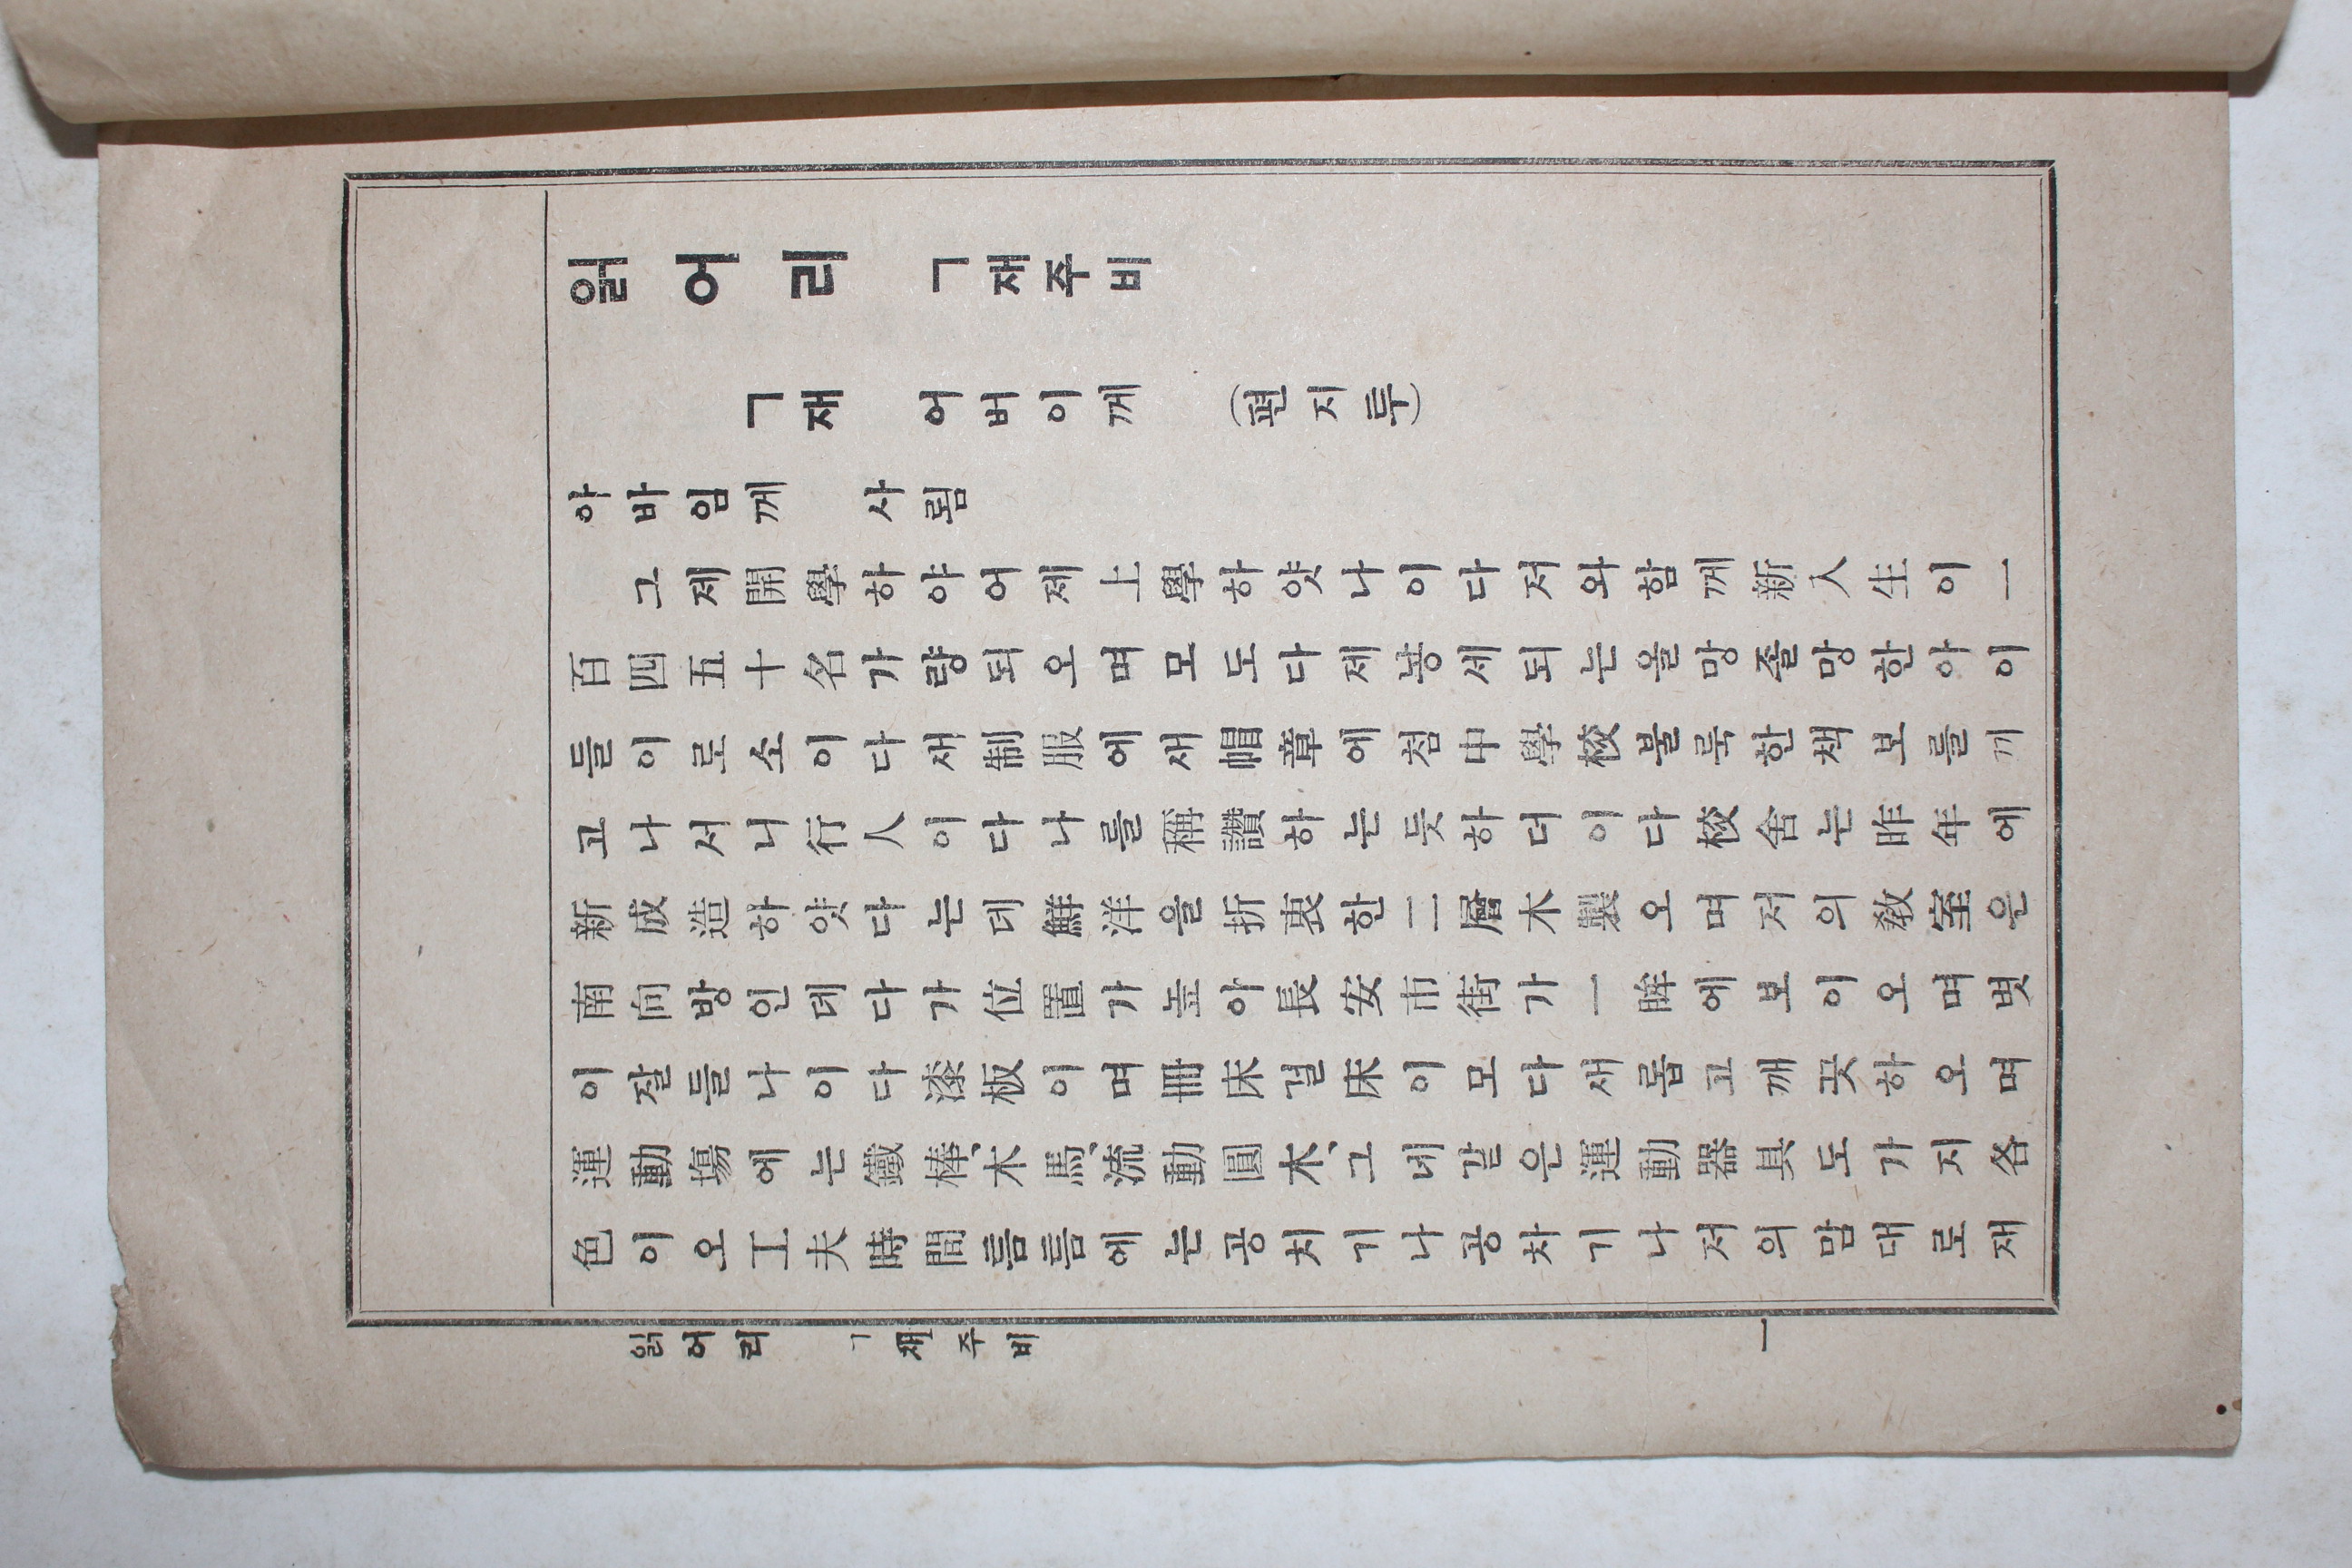 읽어리 ㄱ재주비
ㄱ재 어버이께 (편지투)
아바임께 사룀
그제開學하야어제上學하얏나이다저와함께新入生이一
百四五十名가량되오며모도다제놓세되는올망졸망한아이
들이로소이다새制服에새帽章에첨中學校불룩한책보를끼
고나서니行人이다나를稱讚하는듯하더이다校舍는昨年에
新成造하얏다는데鮮洋을折衷한二層木製오며저의敎室은
南向방인데다가位置가높아長安市街가一眸에보이오며볏
이잘들나이다漆板이며冊床걸床이모다새롭고깨끗하오며
運動場에는鐵棒、木馬、流動圓木、그네같은運動器具도가지各
色이오工夫時間틈틈에는공치기나공차기나저의맘대로재
읽어리 ㄱ재주비 一